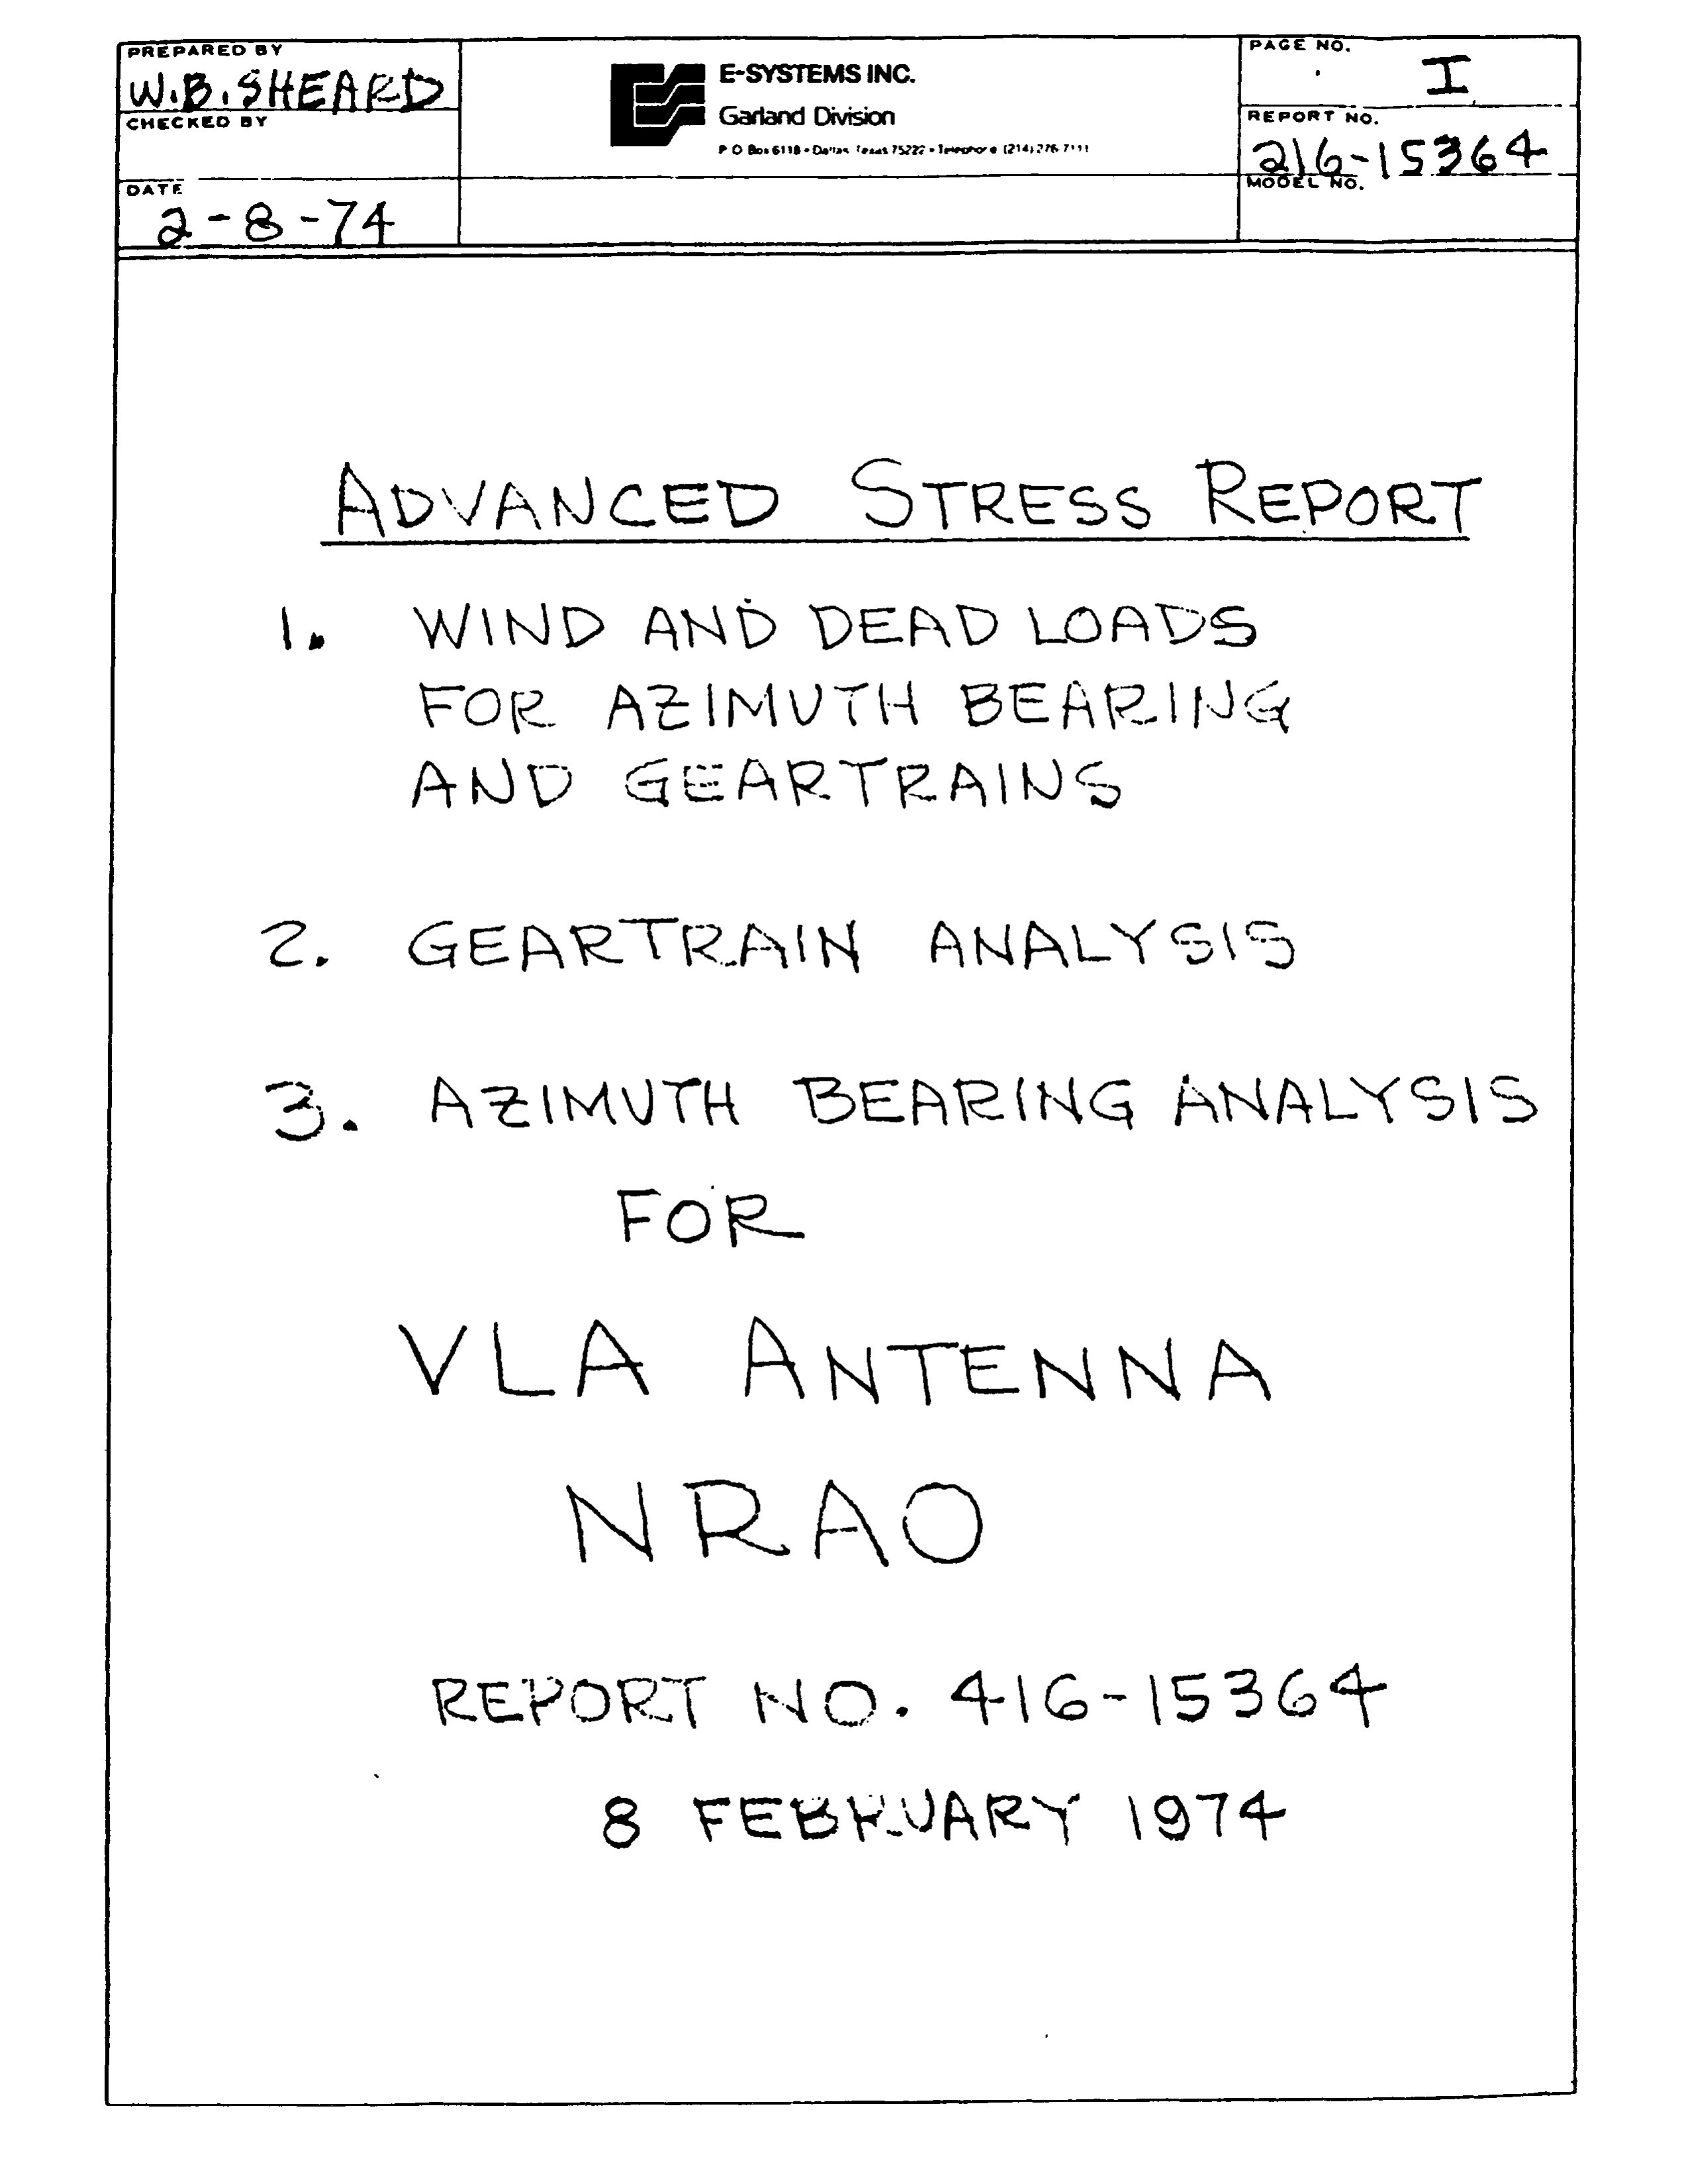 PREPARED BY
W.B. SHEARD
CHECKED BY
DATE
2-8-74
E-SYSTEMS INC.
Garland Division
P O Box 6118 • Dallas Texas 75222 • Telephone (214) 276-7111
PAGE NO.
I
REPORT NO.
216-15364
MODEL NO.
ADVANCED STRESS REPORT
1. WIND AND DEAD LOADS
FOR AZIMUTH BEARING
AND GEARTRAINS
2. GEARTRAIN ANALYSIS
3. AZIMUTH BEARING ANALYSIS
FOR
VLA ANTENNA
NRAO
REPORT NO. 416-15364
8 FEBRUARY 1974